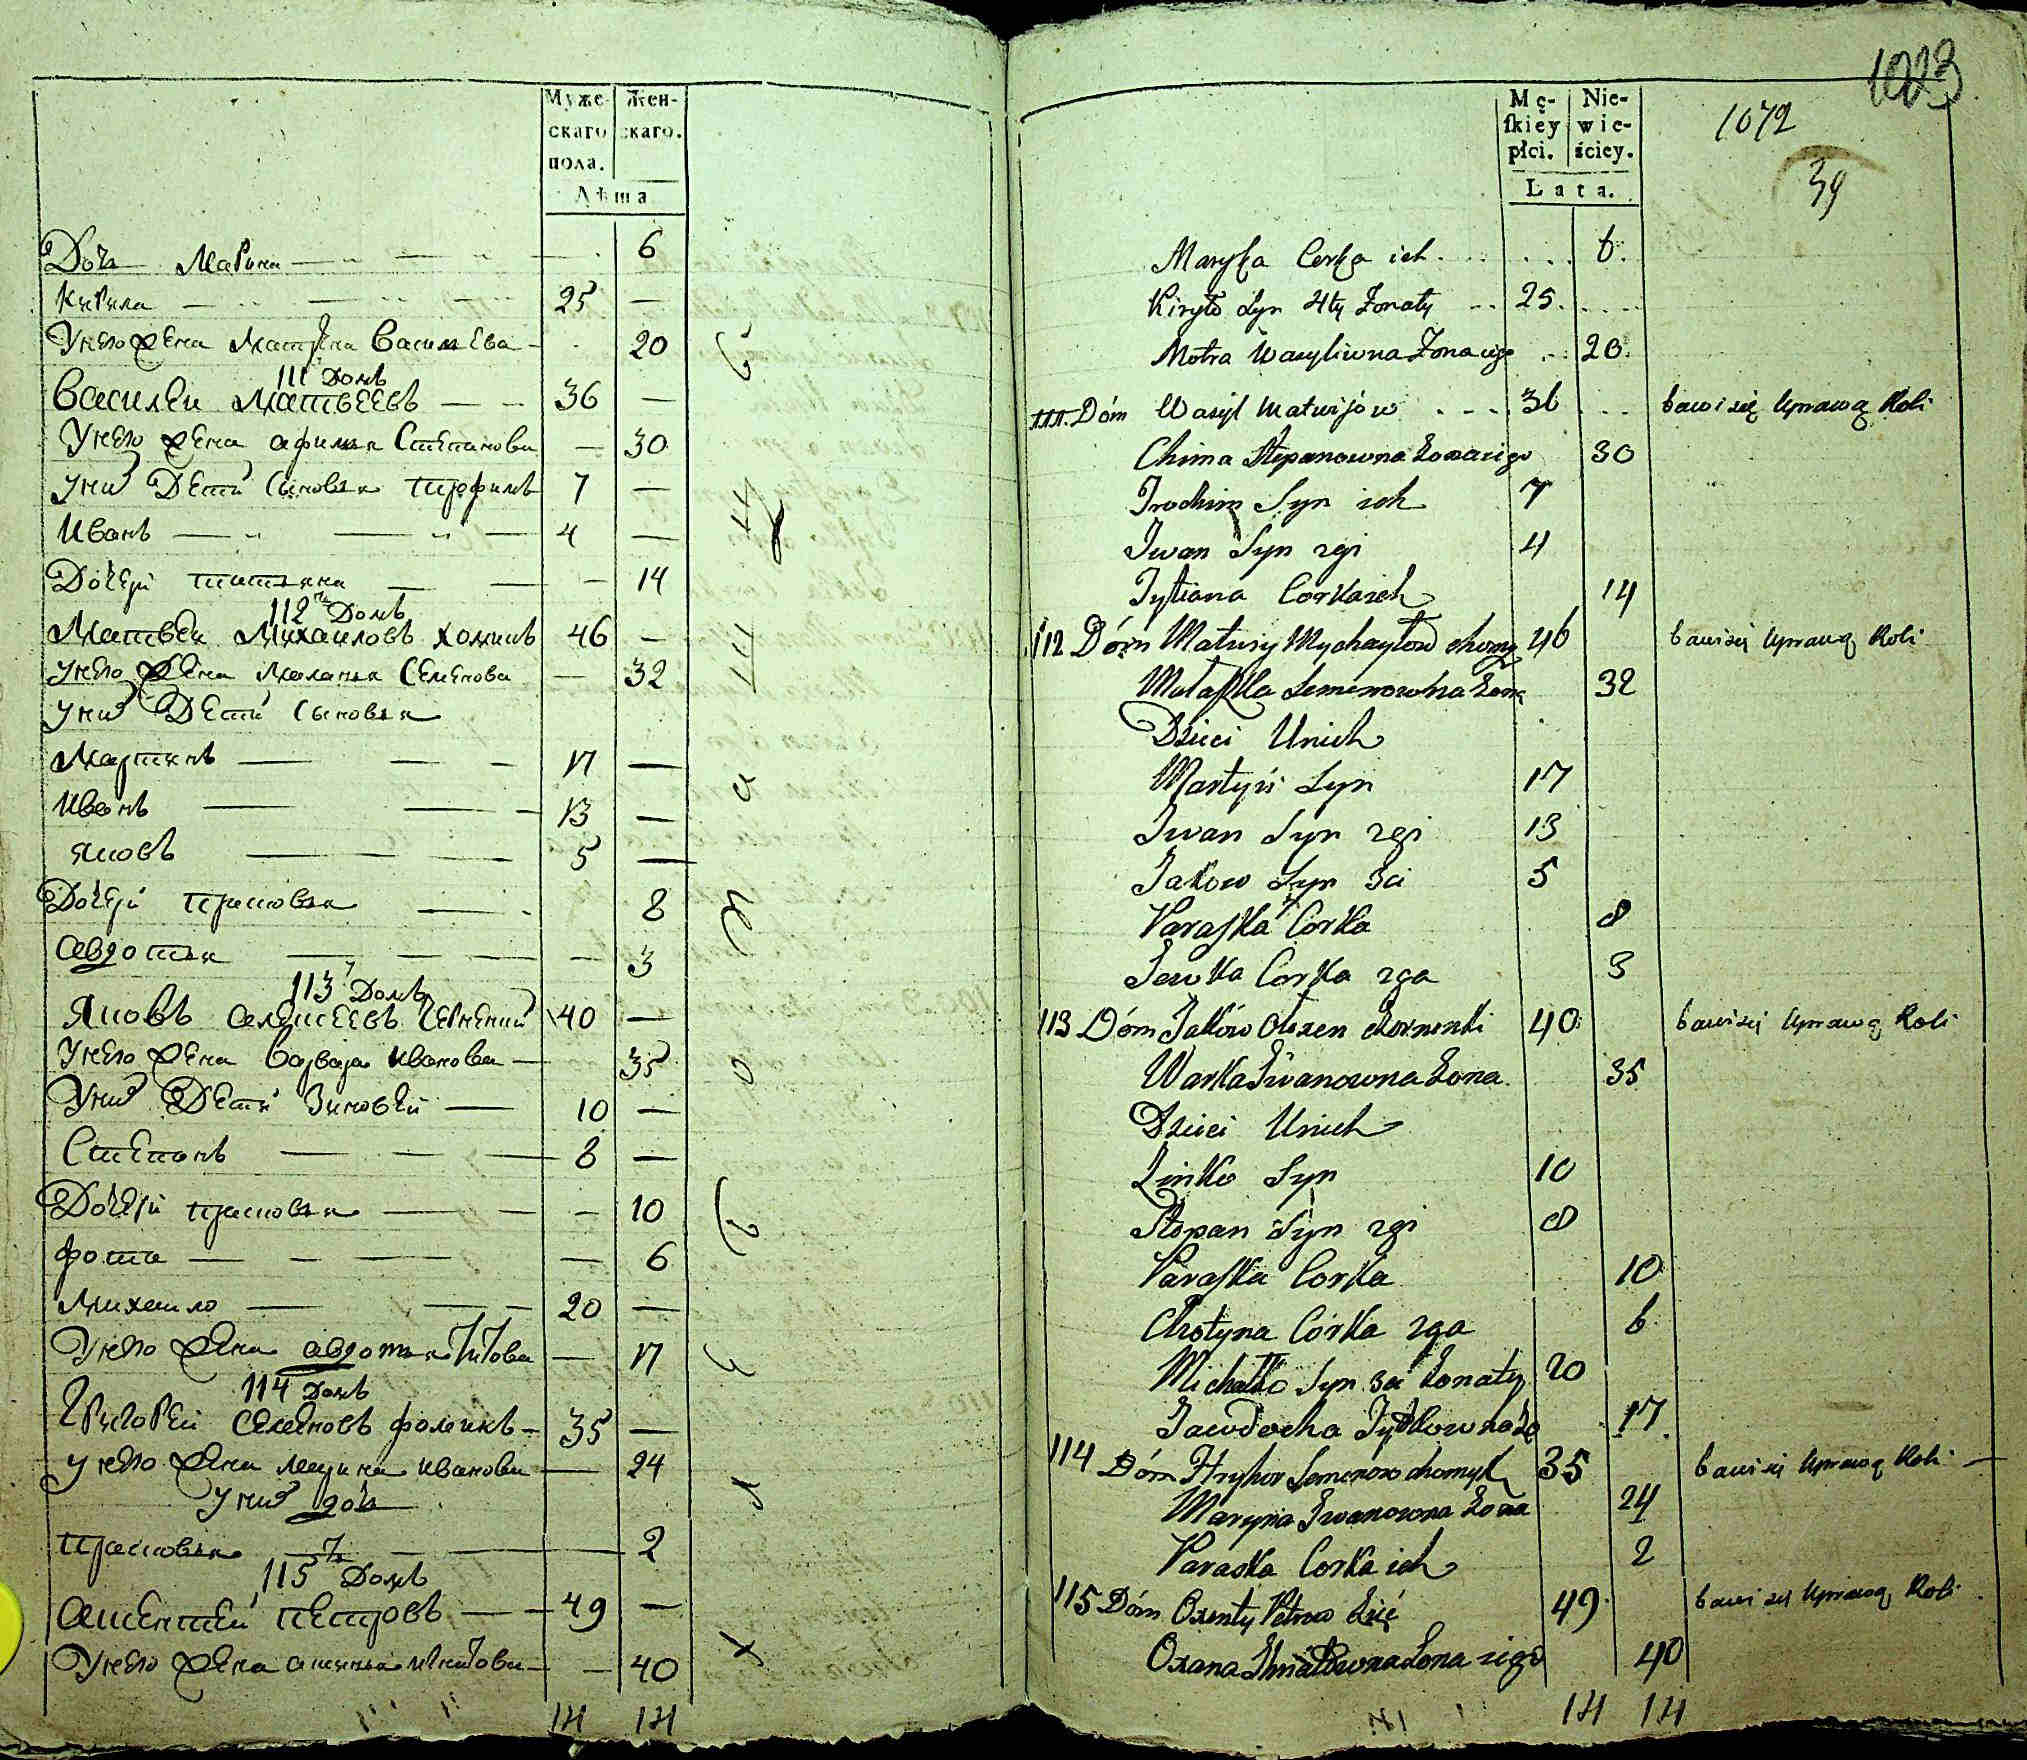 Муже-
скаго
пола.
Жен-
скаго.
Лѣта
Дочь Марина 6
Кирила 25
У него жена Матрена Васильева 20
111 Домъ
Василей Матвеевъ 36
У него жена Афимья Степанова 30
У них дети сыновья Трофимъ 7
Иванъ 4
Дочери Татьяна 14
112 Домъ
Матвей Михаиловъ Хоминъ 46
У него жена Маланья Семенова 32
У них дети сыновья
Мартинъ 17
Иванъ 13
Яковъ 5
Дочери Прасковья 8
Авдотья 3
113 Домъ
Яковъ Алексеевъ 40
У него жена Варвара Иванова 35
У них дети Зиновей 10
Степанъ 8
Дочери Прасковья 10
Фотина 6
Михаило 20
У него жена Авдотья Титова 17
114 Домъ
Григорей Семеновъ Фомикъ 35
У него жена Марина Иванова 24
У них дочь
Прасковья 2
115 Домъ
Аксентей Петровъ 49
У него жена Аксинья Игнатова 40
14 14
1023
1072
39
Mę-
ſkiey
płci.
Nie-
wie-
ściey.
Lata.
Maryſka Corka ich 6
Kiryło Syn 4ty Żonaty 25
Motra Wasyliwna Żona iego 20
111. Dóm Wasyl Matwijów 36 bawi się Uprawą Roli
Chima Stepanowna Żona iego 30
Trochim Syn ich 7
Iwan Syn 2gi 4
Tytiana Corka ich 14
112 Dóm Matwiy Mychayłow Chomy 46 bawi się Uprawą Roli
Małaſzka Semenowna Żona 32
Dzieci Unich
Martyn Syn 17
Iwan Syn 2gi 13
Jakow Syn 3ci 5
Paraſka Corka 8
Jewka Corka 2ga 3
113 Dóm Jaków Olexen 40 bawi się Uprawą Roli
Warka Iwanowna Żona 35
Dzieci Unich
Zinko Syn 10
Stepan Syn 2gi 8
Paraſka Corka 10
Chotyna Córka 2ga 6
Michałko Syn 3ci Żonaty 20
Jawdocha Tytkowna Żo 17
114 Dóm Hryhor Semenow Chomyk 35 bawi się Uprawą Roli
Maryna Iwanowna Żona 24
Paraska Corka ich 2
115 Dóm Oxenty Petrow 49 bawi się Uprawą Roli
Oxana Ihnatowna Żona iego 40
14 14